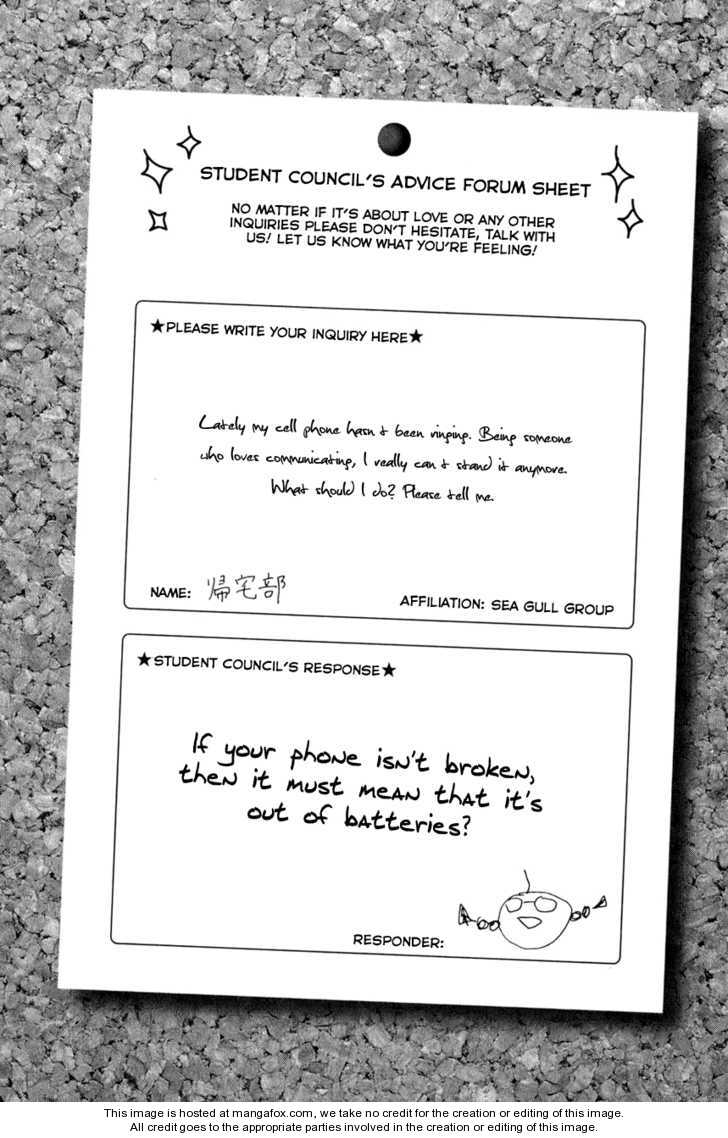 STUDENT COUNCIL'S ADVICE FORUM SHEET
NO MATTER IF IT'S ABOUT LOVE OR ANY OTHER
INQUIRIES PLEASE DON'T HESITATE, TALK WITH
US! LET US KNOW WHAT YOU'RE FEELING!
★PLEASE WRITE YOUR INQUIRY HERE★
Lately my cell phone hasn't been ringing. Being someone
who loves communicating, I really can't stand it anymore.
What should I do? Please tell me.
NAME: 帰宅部
AFFILIATION: SEA GULL GROUP
★STUDENT COUNCIL'S RESPONSE★
If your phone isn't broken,
then it must mean that it's
out of batteries?
RESPONDER:
This image is hosted at mangafox.com, we take no credit for the creation or editing of this image.
All credit goes to the appropriate parties involved in the creation or editing of this image.